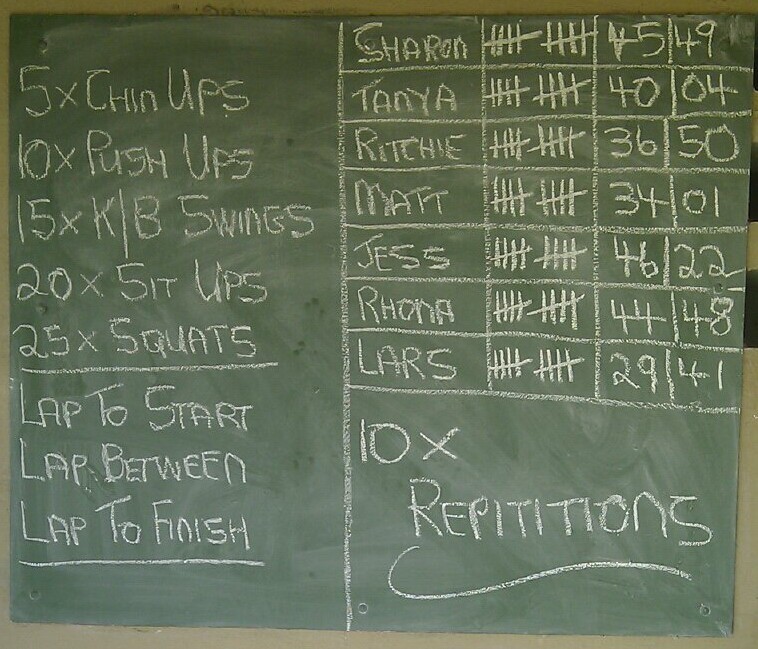 5x CHIN UPS
10x PUSH UPS
15x K/B SWINGS
20x SIT UPS
25x SQUATS
LAP TO START
LAP BETWEEN
LAP TO FINISH
SHARON 45 49
TANYA 40 04
RITCHIE 36 50
MATT 34 01
JESS 46 22
RHONA 44 48
LARS 29 41
10x
REPITITIONS